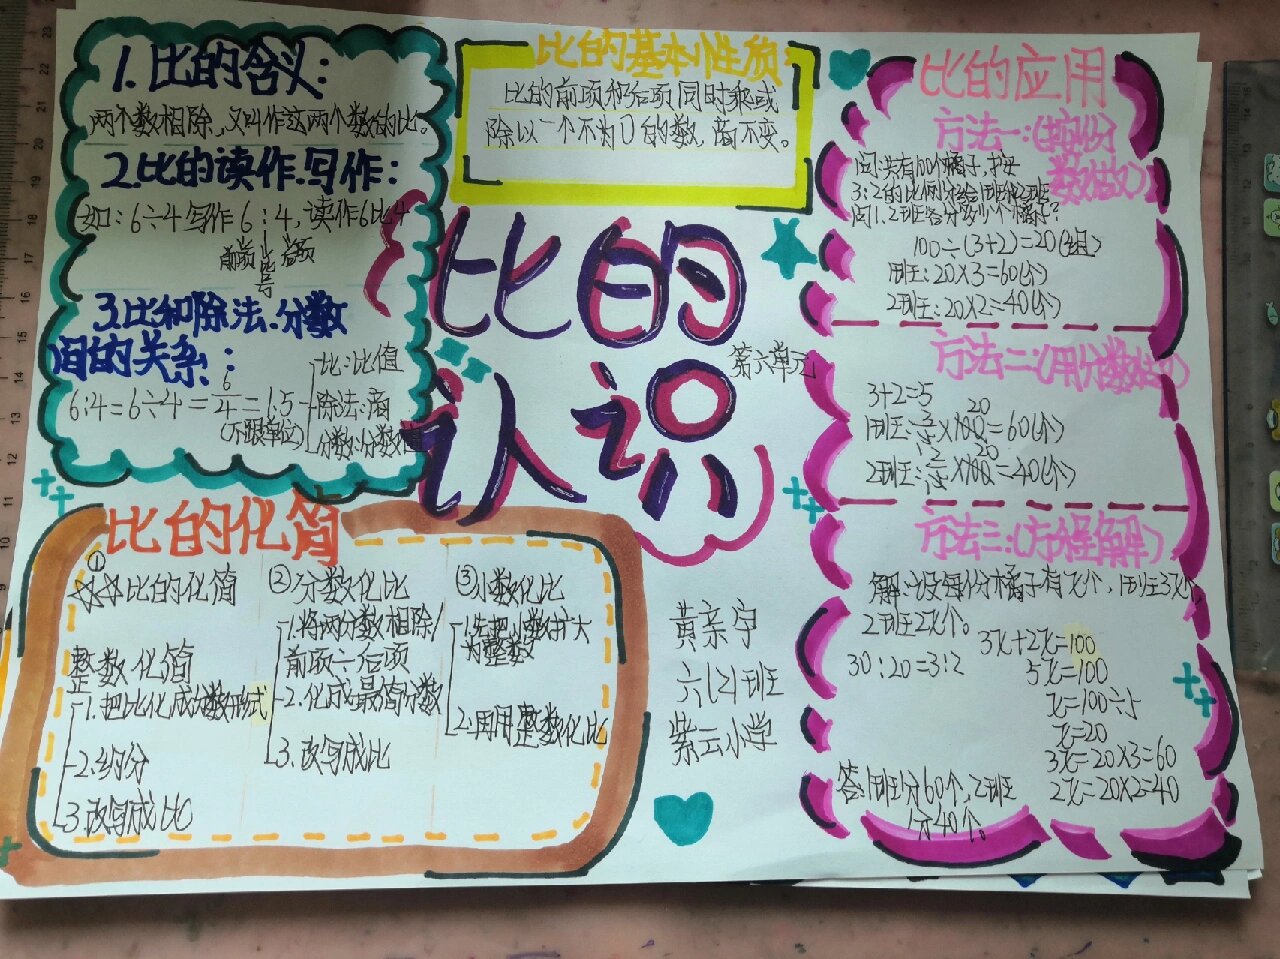 1.比的含义:
两个数相除,又叫作这两个数的比。
2.比的读作.写作:
如:6÷4写作6:4,读作6比4
前项 比号 后项
3.比和除法.分数
间的关系:
6:4=6÷4=6/4=1.5
(不跟单位)
比:比值
除法:商
分数:分数值
比的基本性质
比的前项和后项同时乘或
除以一个不为0的数,商不变。
比的认识
第六单元
比的应用
方法一:(按份
数做)
问:共有100个橘子,按
3:2的比例分给1班和2班
问1.2班各分多少个橘子?
100÷(3+2)=20(组)
1班:20×3=60(个)
2班:20×2=40(个)
方法二:(用分数做)
3+2=5
20
1班:3/5×100=60(个)
20
2班:2/5×100=40(个)
方法三:(方程解)
解:设每份橘子有x个,1班3x个,
2班2x个。
3x+2x=100
30:20=3:2
5x=100
x=100÷5
x=20
3x=20×3=60
2x=20×2=40
答:1班分60个,2班
分40个。
比的化简
①
比的化简
整数化简
1.把比化成分数形式
2.约分
3.改写成比
②分数化比
1.将两分数相除/
前项÷后项
2.化成最简分数
3.改写成比
③小数化比
1.先把小数扩大
为整数
2.再用整数化比
黄亲宇
六(2)班
紫云小学